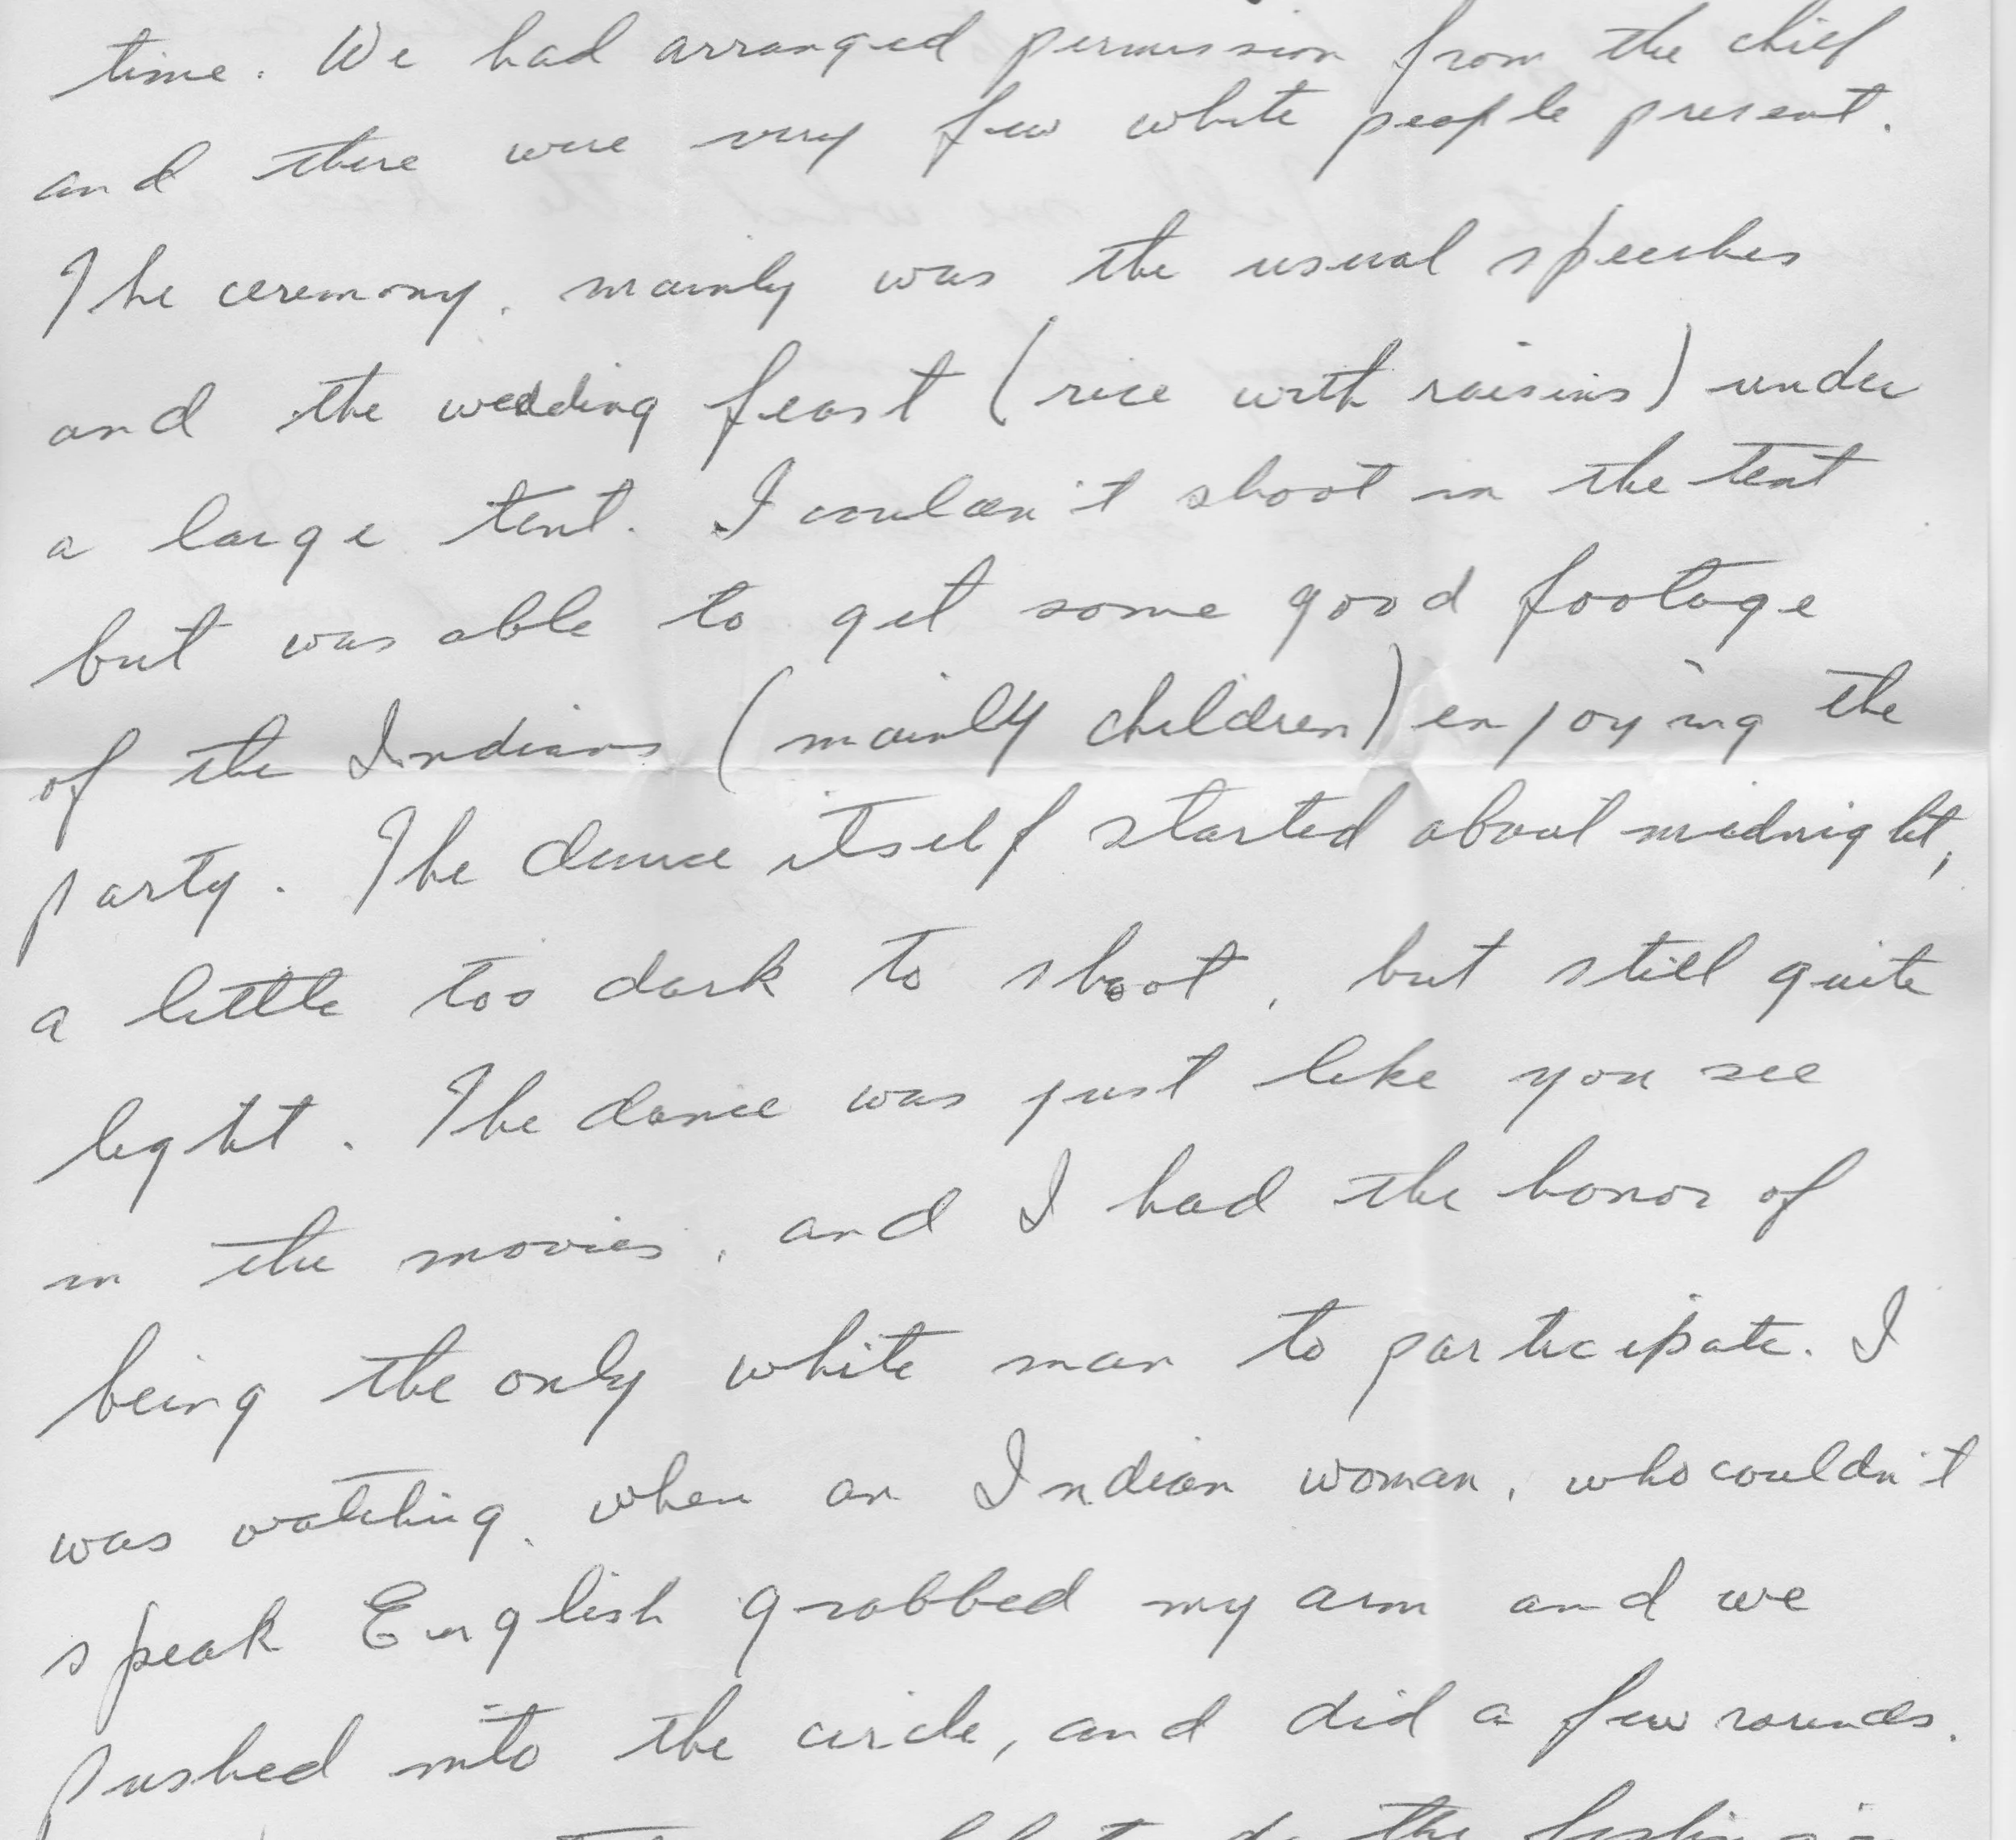 time. We had arranged permission from the chief
and there were very few white people present.
The ceremony, mainly was the usual speeches
and the wedding feast (rice with raisins) under
a large tent. I couldn't shoot in the tent
but was able to get some good footage
of the Indians (mainly children) enjoying the
party. The dance itself started about midnight,
a little too dark to shoot, but still quite
light. The dance was just like you see
in the movies, and I had the honor of
being the only white man to participate. I
was watching, when an Indian woman, who couldn't
speak English grabbed my arm and we
pushed into the circle, and did a few rounds.
the